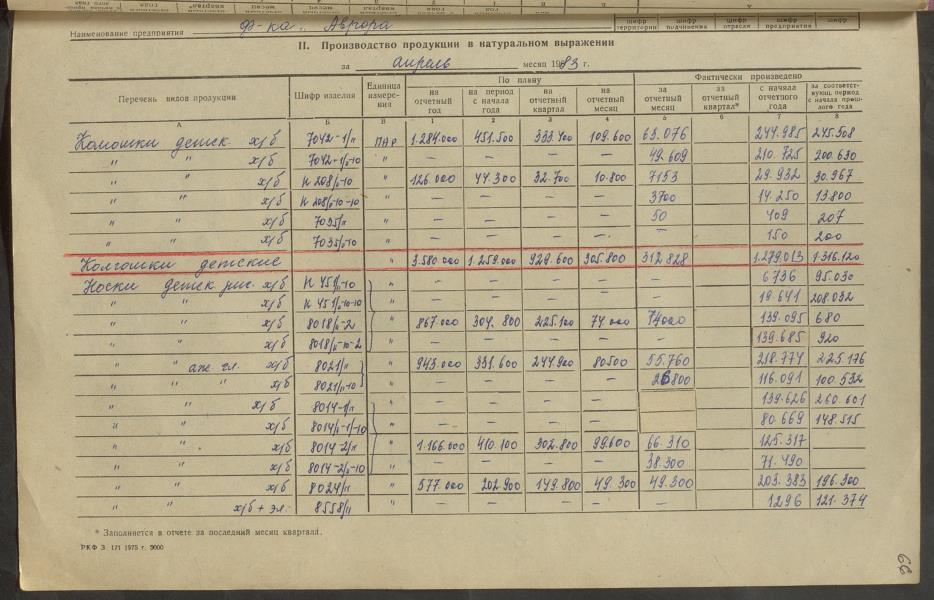 Наименование предприятия ф-ка „Аврора
шифр территории шифр подчинения шифр отрасли шифр предприятия шифр
II. Производство продукции в натуральном выражении
за апрель месяц 1983 г.
Перечень видов продукции Шифр изделия Единица измерения По плану Фактически произведено
на отчетный год на период с начала года на отчетный квартал на отчетный месяц за отчетный месяц за отчетный квартал* с начала отчетного года за соответствующ. период с начала прошлого года
А Б В 1 2 3 4 5 6 7 8
Колготки детск. х/б 7042-1/п ПАР 1.284.000 451.500 333.400 109.600 63.076 244.985 245.508
" " х/б " — — — — 49.609 210.725 200.630
" " х/б " 126.000 44.300 32.700 10.800 7153 29.932 30.967
" " х/б " — — — — 3700 14.250 13.800
" " х/б " — — — — 50 409 207
" " х/б " — — — — 150 200
Колготки детские " 3.580.000 1.259.000 929.600 305.800 312828 1.279.013 1.316.120
Носки детск рис. х/б " — — — — — 6736 95.030
" " х/б " — — — — — 19.641 208.032
" " х/б " 867.000 304.800 225.100 74.000 74000 139.095 680
" " х/б " — — — — — 139.685 920
" " х/б 8021/п " 943.000 331.600 244.900 80500 55.760 218.774 225.176
" " " х/б 8021/п-10 " — — — — 26800 116.091 100.532
" " х/б 8014-1/п " — — — — 139.626 260.601
" " х/б " — — — — 80.669 148.515
" " х/б 8014-2/п " 1.166.000 410.100 302.800 99.600 66.310 125.317
" " х/б " — — — — 38.300 71.490
" " х/б 8024/п " 577.000 202.900 149.800 49.300 49.300 203.383 196.300
" " х/б + эл. 8558/п " — — — — — 1296 121.374
* Заполняется в отчете за последний месяц квартала.
РКФ З. 171 1975 г. 5000
66